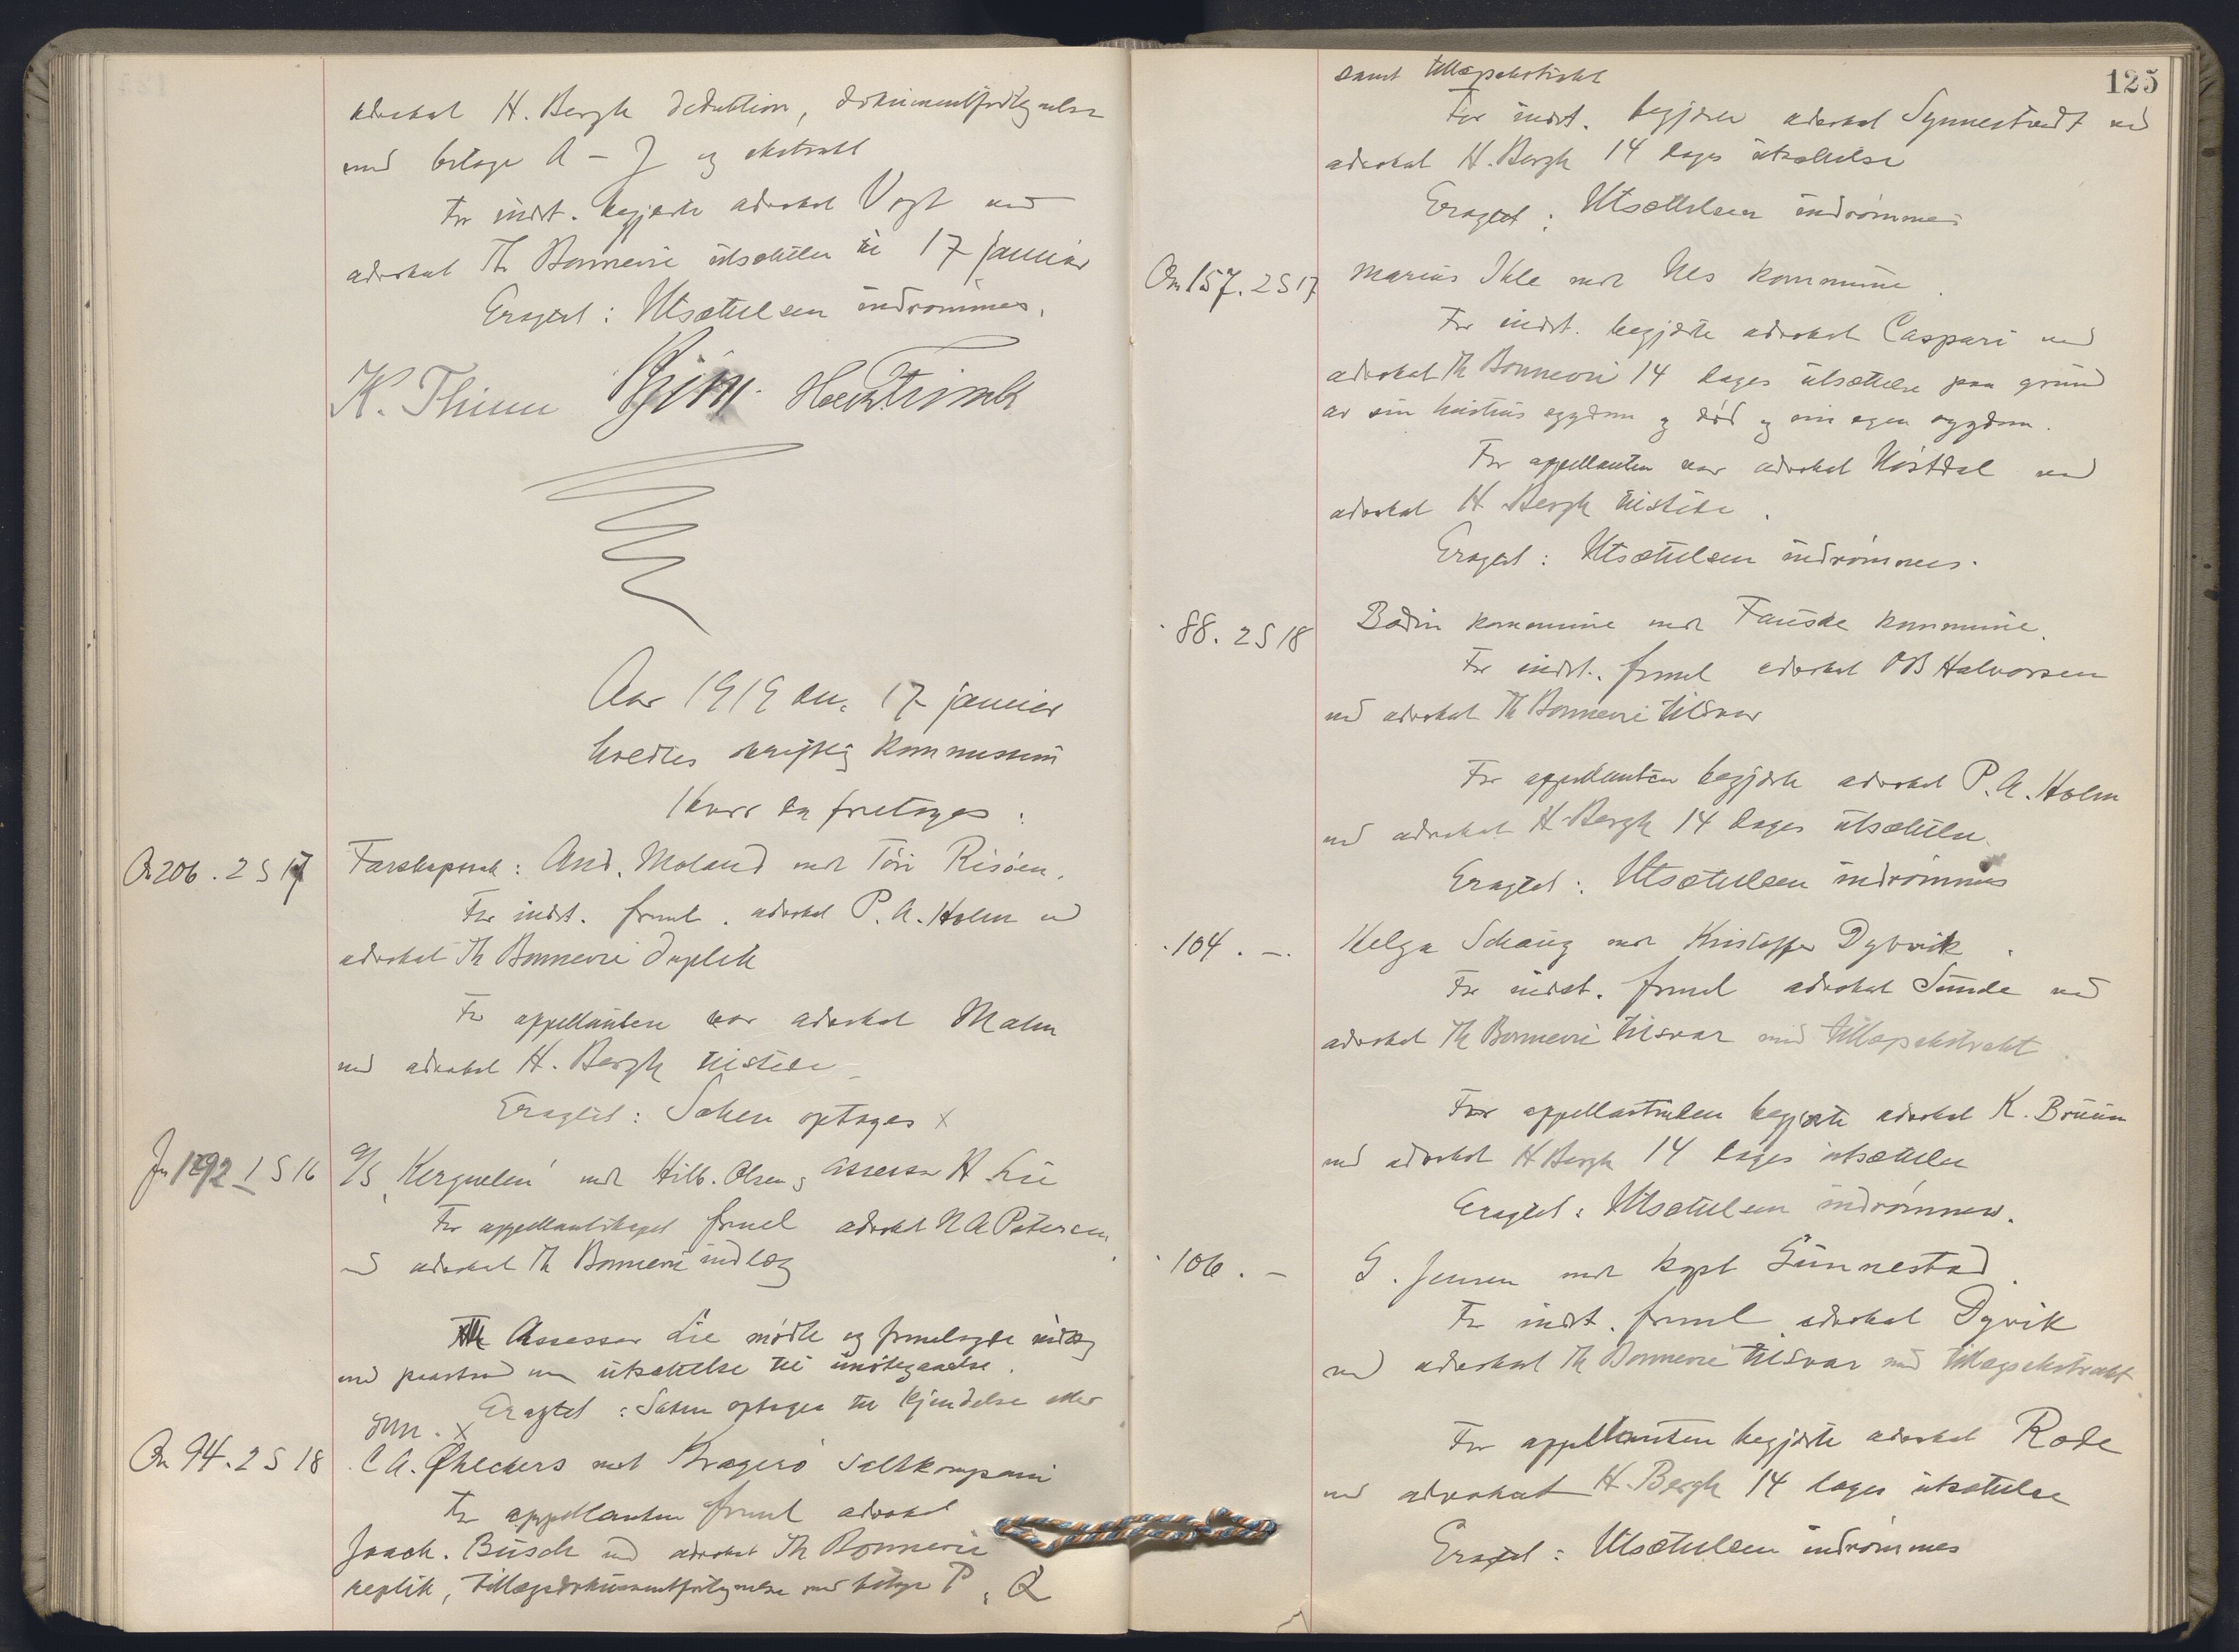 advokat H. Bergh deduktion, dokumentfortegnelse
med bilage A - J og ekstrakt
For indst. begjærte advokat Vogt ved
advokat Th Bonnevie utsættelse til 17 januar
Eragtet : Utsættelsen indrømmes.
K. Thinn
Aar 1919 den 17 januar
holdtes skriftlig kommission
Hvor da foretoges :
On 206. 2 S 17
Farskapssak : And. Moland mot Tori Risøen.
For indst. freml. advokat P. A. Holm ved
advokat Th Bonnevie duplik
For appellanten var advokat Malm
ved advokat H. Bergh tilstede
Eragtet : Saken optages x
Jn 1292 1 S 16
A/S "Kerguelen" mot Hilb. Olsen og assessor H Lie
For appellantskapet freml advokat N A Petersen
ved advokat Th Bonnevie indlæg
Assessor Lie møtte og fremlagde indlæg
med paastand om utsættelse til imøtegaaelse.
Eragtet : Saken optages til kjendelse eller
dom. x
On 94. 2 S 18
C A. Øhlckers mot Kragerø Saltkompani
For appellanten freml advokat
Joach. Busch ved advokat Th Bonnevie
replik, tillægsdokumentfortegnelse med bilage P, Q
125
samt tillægsekstrakt
For indst. begjærer advokat Synnestvedt ved
advokat H. Bergh 14 dages utsættelse
Eragtet : Utsættelsen indrømmes
On 157. 2 S 17
Marius Ihle mot Nes kommune.
For indst. begjærte advokat Caspari ved
advokat Th Bonnevie 14 dages utsættelse paa grund
av sin hustrus sygdom og død og sin egen sygdom.
For appellanten var advokat ved
advokat H Bergh tilstede.
Eragtet : Utsættelsen indrømmes.
" 88. 2 S 18
Bodin kommune mot Fauske kommune.
For indst. freml advokat O B Halvorsen
ved advokat Th Bonnevie tilsvar
For appellanten begjærte advokat P. A. Holm
ved advokat H Bergh 14 dages utsættelse.
Eragtet : Utsættelsen indrømmes
" 104. -.
Helga Schaug mot Kristoffer Dybvik.
For indst. freml advokat Sunde ved
advokat Th Bonnevie tilsvar med tillægsekstrakt.
For appellantinden begjærte advokat K. Bruun
ved advokat H Bergh 14 dages utsættelse
Eragtet : Utsættelsen indrømmes.
" 106. -
G. Jensen mot kapt Gunnestad.
For indst. freml advokat Dyvik
ved advokat Th Bonnevie tilsvar med tillægsekstrakt.
For appellanten begjærte advokat Rode
ved advokat H. Bergh 14 dages utsættelse
Eragtet : Utsættelsen indrømmes